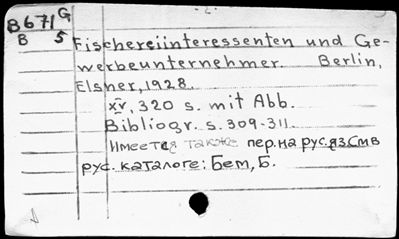 - 2. -
B671 G
B 5
Fischereiinteressenten und Ge-
werbeunternehmer. Berlin,
Elsner, 1928.
XV, 320 s. mit Abb.
Bibliogr. s. 309-311.
Имеется также пер. на рус. яз. См в
рус. каталоге: Бем, Б.